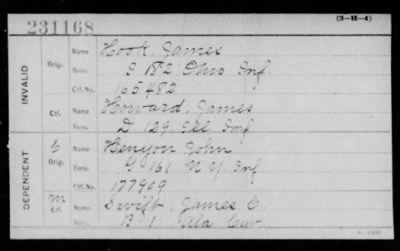 231168
(3-H-4)
INVALID
Orig.
Name Hook, James
Serv. G 182 Ohio Inf.
Ctf. No. 165482
Ctf.
Name Howard, James
Serv. D 129 Ill Inf
DEPENDENT
Orig.
Name Kenyon John
Serv. G 161 N Y Inf
Ctf. No. 177909
M
Ctf.
Name Swift, James C
Serv. B 1 Ala Cav.